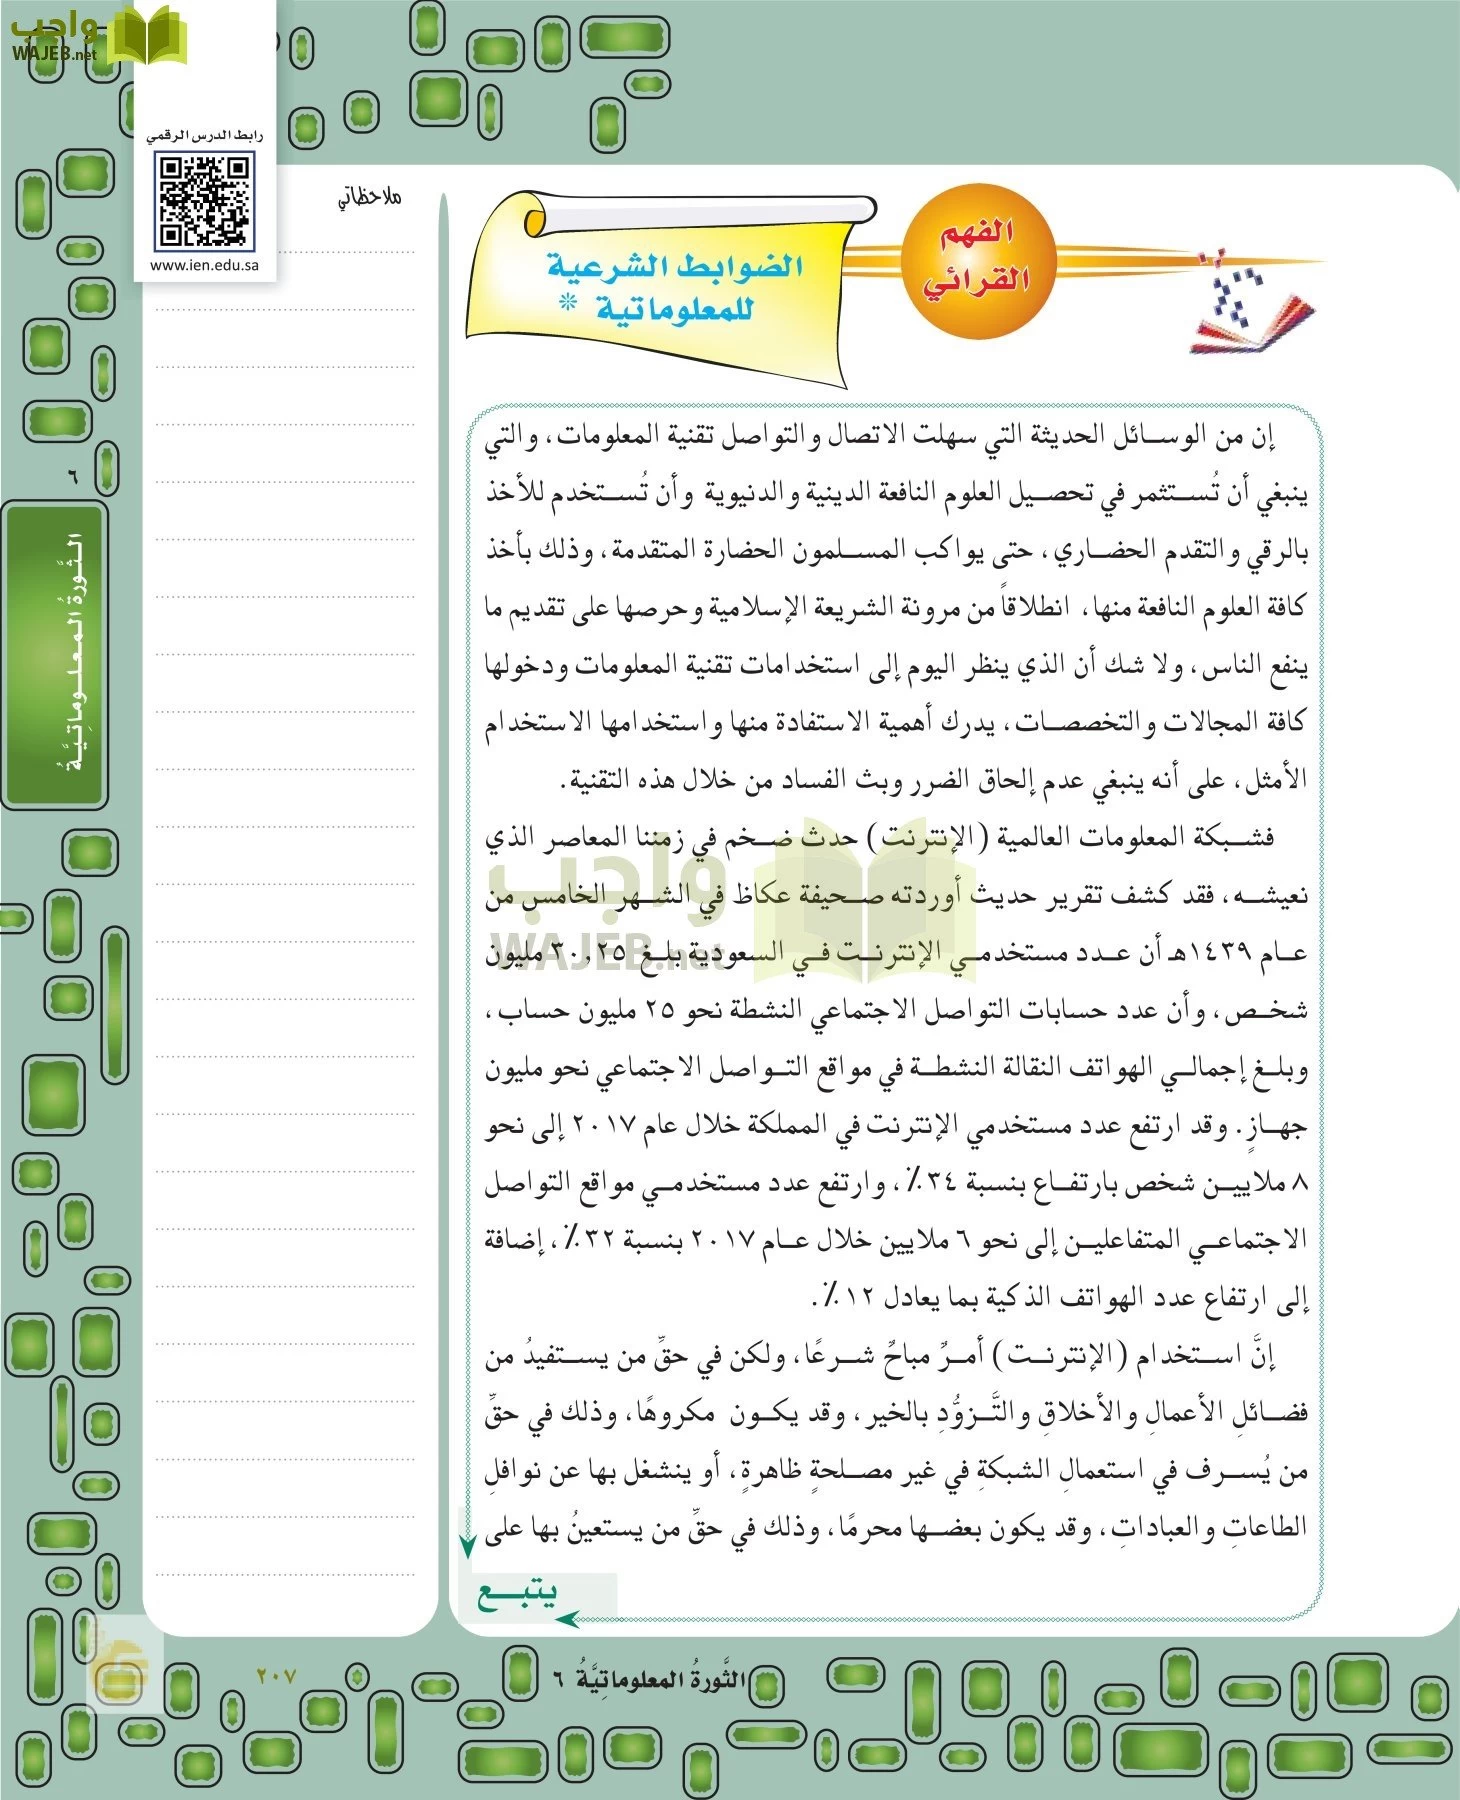 واجب
WAJEB.net
رابط الدرس الرقمي
www.ien.edu.sa
ملاحظاتي
الفهم
القرائي
الضوابط الشرعية
للمعلوماتية *
إن من الوسائل الحديثة التي سهلت الاتصال والتواصل تقنية المعلومات، والتي
ينبغي أن تُستثمر في تحصيل العلوم النافعة الدينية والدنيوية وأن تُستخدم للأخذ
بالرقي والتقدم الحضاري، حتى يواكب المسلمون الحضارة المتقدمة، وذلك بأخذ
كافة العلوم النافعة منها، انطلاقاً من مرونة الشريعة الإسلامية وحرصها على تقديم ما
ينفع الناس، ولا شك أن الذي ينظر اليوم إلى استخدامات تقنية المعلومات ودخولها
كافة المجالات والتخصصات، يدرك أهمية الاستفادة منها واستخدامها الاستخدام
الأمثل، على أنه ينبغي عدم إلحاق الضرر وبث الفساد من خلال هذه التقنية.
فشبكة المعلومات العالمية (الإنترنت) حدث ضخم في زمننا المعاصر الذي
نعيشه، فقد كشف تقرير حديث أوردته صحيفة عكاظ في الشهر الخامس من
عام ١٤٣٩هـ أن عدد مستخدمي الإنترنت في السعودية بلغ ٣٠,٢٥ مليون
شخص، وأن عدد حسابات التواصل الاجتماعي النشطة نحو ٢٥ مليون حساب،
وبلغ إجمالي الهواتف النقالة النشطة في مواقع التواصل الاجتماعي نحو مليون
جهازٍ. وقد ارتفع عدد مستخدمي الإنترنت في المملكة خلال عام ٢٠١٧ إلى نحو
٨ ملايين شخص بارتفاع بنسبة ٣٤٪، وارتفع عدد مستخدمي مواقع التواصل
الاجتماعي المتفاعلين إلى نحو ٦ ملايين خلال عام ٢٠١٧ بنسبة ٣٢٪، إضافة
إلى ارتفاع عدد الهواتف الذكية بما يعادل ١٢٪.
إنَّ استخدام (الإنترنت) أمرٌ مباحٌ شرعًا، ولكن في حقِّ من يستفيدُ من
فضائلِ الأعمالِ والأخلاقِ والتَّزوُّدِ بالخير، وقد يكون مكروهًا، وذلك في حقِّ
من يُسرف في استعمالِ الشبكةِ في غير مصلحةٍ ظاهرةٍ، أو ينشغل بها عن نوافلِ
الطاعاتِ والعباداتِ، وقد يكون بعضها محرمًا، وذلك في حقِّ من يستعينُ بها على
يتبع
واجب
WAJEB.net
٦
الثَّورةُ المعلوماتِيَّةُ
الثَّورةُ المعلوماتِيَّةُ ٦
٢٠٧